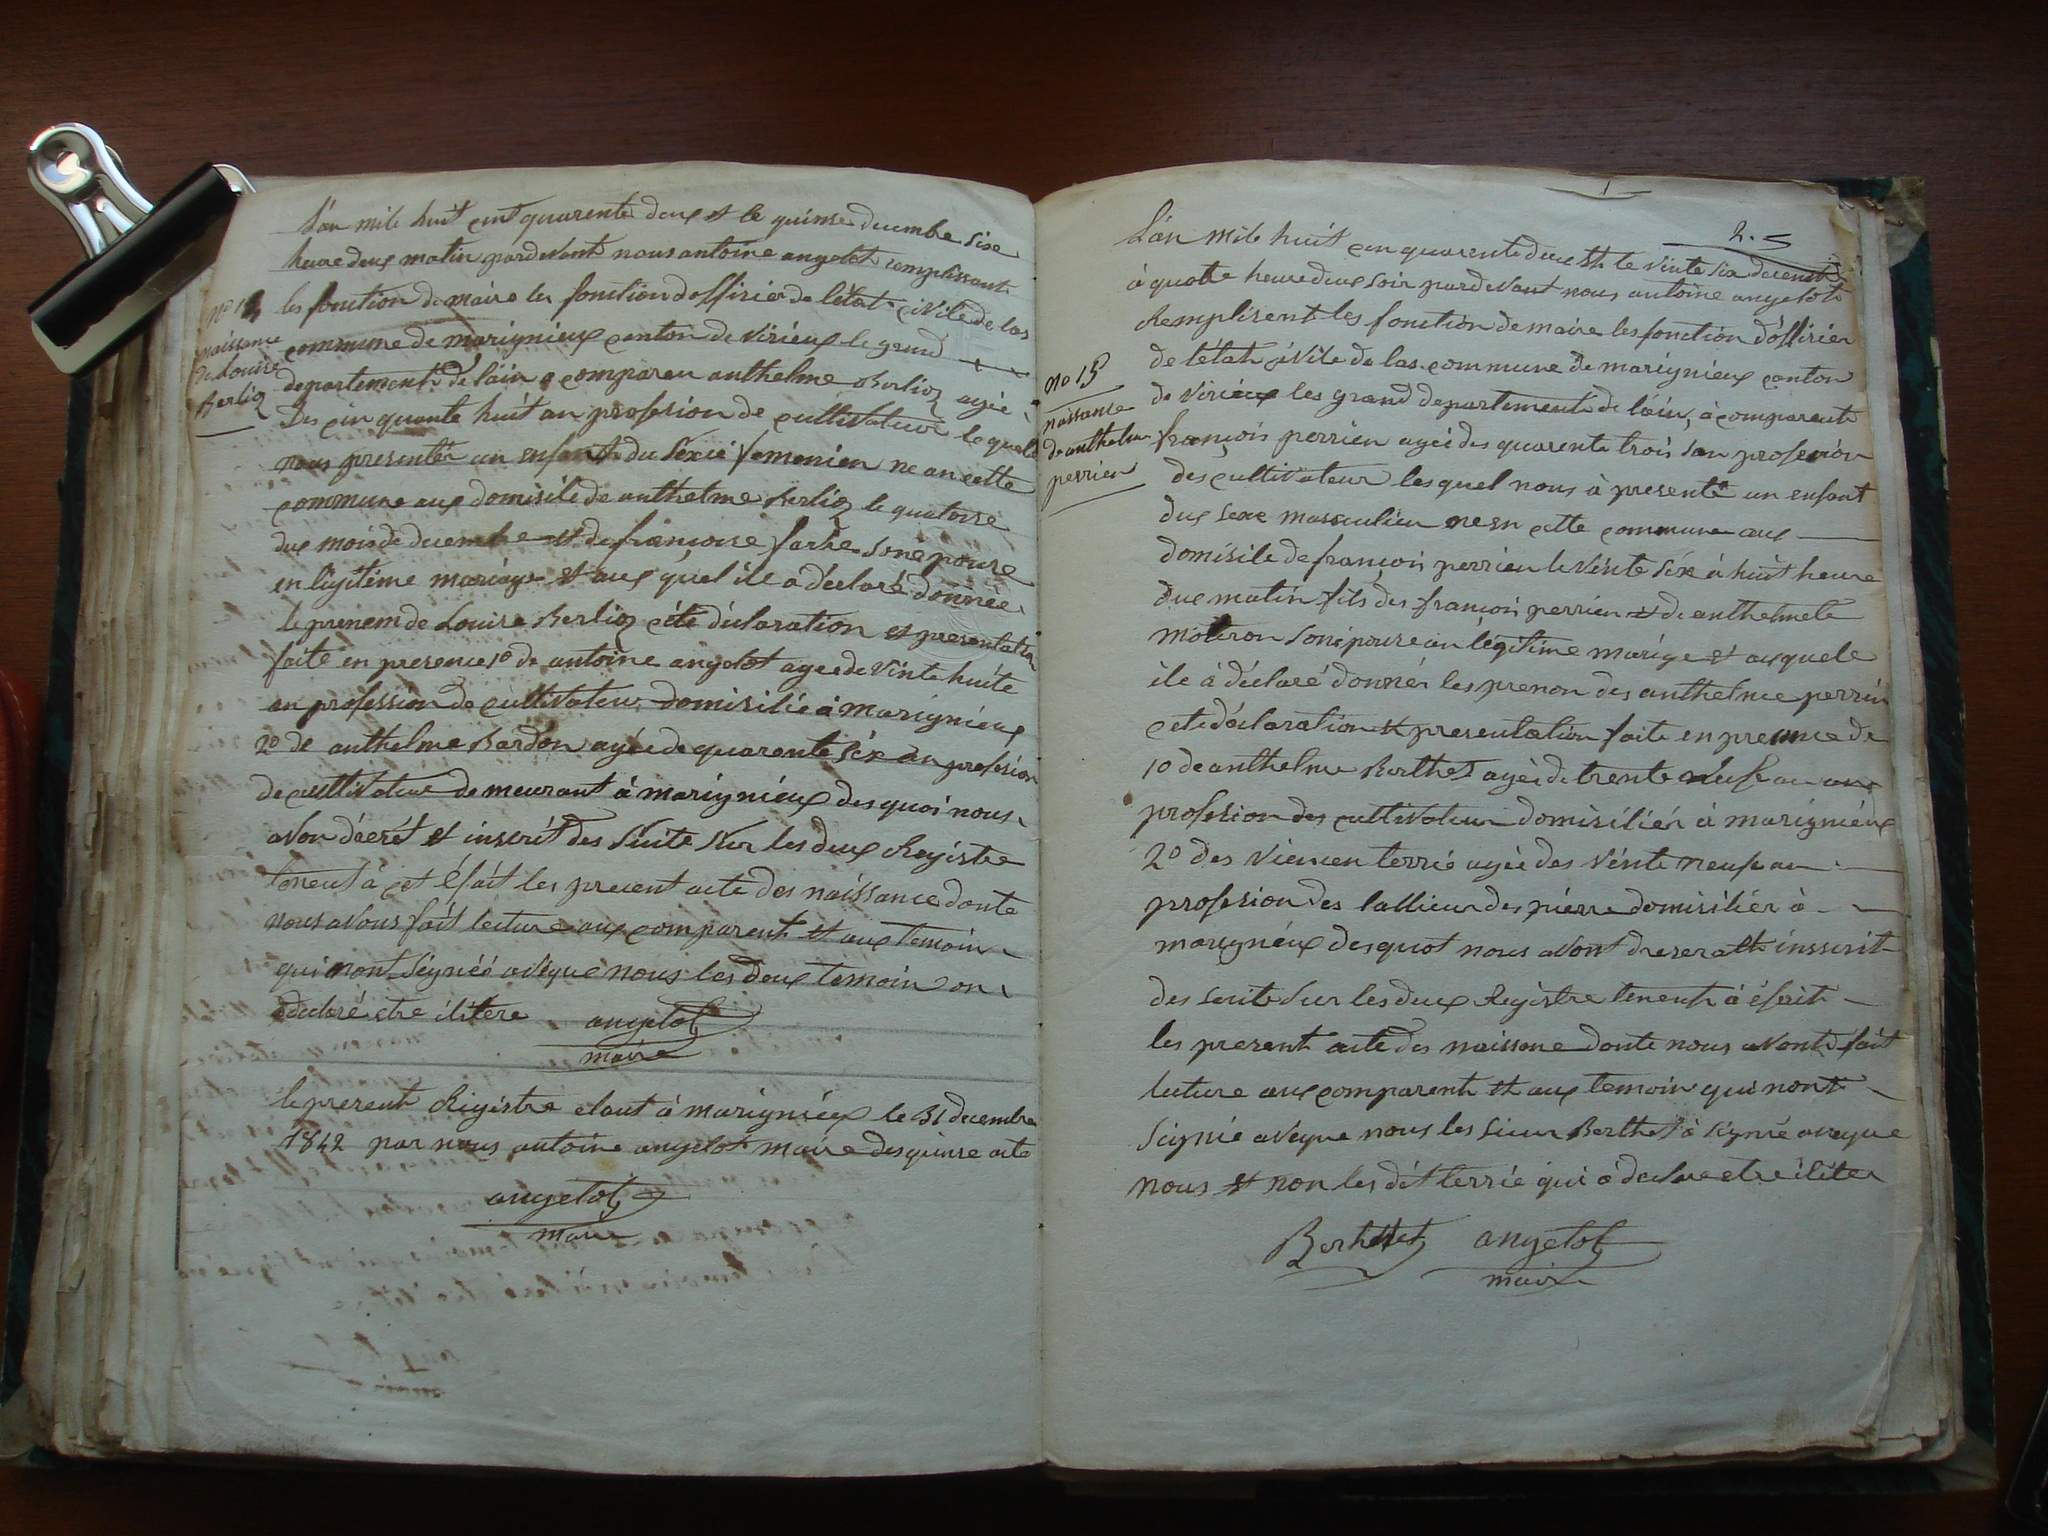 L'an mile huit cent quarente deux et le quinse decembre sixe
heure deux matin pardevant nous antoine angelot remplissant
les fonction de maire les fonction d'offisier de l'état civile de las
commune de marignieux canton de virieux le grand
departement de l'ain a comparu anthelme Berlioz agée
Des cinquante huit an profesion de cultivateur le quel
nous presenter un enfant du sexe femenien ne an cette
commune aux domisile de anthelme Berlioz le quatorse
dux mois de decembre et de françoise sone pouse
en ligitime mariage et aux quel ile a déclaré donnée
le prenem de Louise Berlioz cété déclaration et presentation
faite en presence 1o de antoine angelot agee de vinte huite
an profession de cultivateur domisilié à marignieux
2o de anthelme Bardon agée de quarente six an profesion
de cultivateur demeurant à marignieux des quoi nous
avon et inscrit des suite sur les deux Registre
tenent à et éfait les present acte des naissance donte
nous avons fait lecture aux comparent et aux temoin
qui nont signéé avéque nous les deux temoin on
declaré etre ilitere angelot
maire
No 1
naissance
de Louise
Berlioz
le present Rigistre clout à marignieux le 31 decembre
1842 par nous antoine angelot maire des quinse acte
angelot
maire
2.
L'an mile huit cen quarente deux et le vinte six decembre
à quatre heure deux soir pardevant nous antoine angelot
Remplisent les fonction de maire les fonction d'offisier
de l'etat civile de las commune de marignieux canton
de virieux les grand departement de l'ain, à comparente
françois perrien agéé des quarente trois san profesion
des cultivateur lesquel nous à presenté un enfant
dux sexe masculien ne en cette commune aux
domisile de françois perrien le vinte six à huit heure
dux matin fils des françois perrien et de anthelmete
sone pouse an légitime mariage et auquele
ile à déclaré donner les prenon des anthelme perrien
cete déclaration et presentation faite en presence de
1o de anthelme Berthet agée de trente neuf an
profesion des cultivateur domisiliér à marignieux
2o des terrié agée des vinte neuf an
profesion des tallieur des pierre domisiliér à
marignieux des quot nous avont et insscrit
des suite sur les deux Registre tenent à éfait
les present acte des naissane donte nous avont fait
lecture aux comparent et aux temoin qui nont
signié aveque nous les sieur Berthet à signié aveque
nous et non les dit terrié qui a declare etre iliter
Berthet angelot
maire
No 15
naissance
de anthelme
perrien